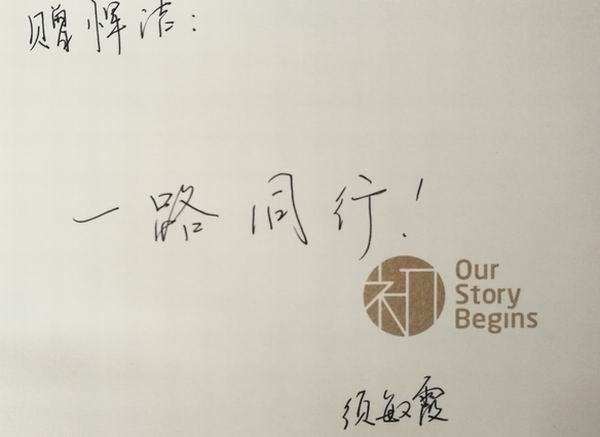 赠恽洁：
一路同行！
初
Our
Story
Begins
须敏霞